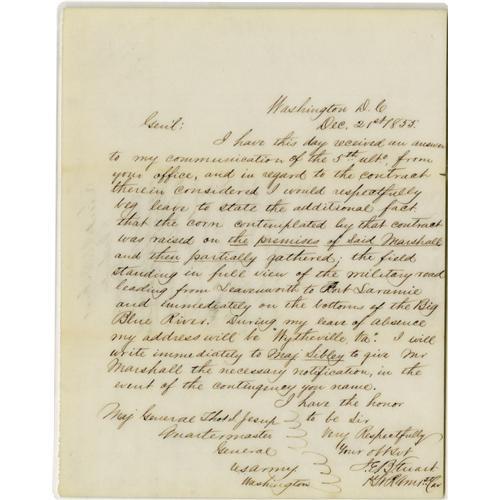 Washington D.C
Dec. 21st 1855.
Genl:
I have this day received an answer
to my communication of the 5th ulto. from
your office, and in regard to the contract
therein considered I would respectfully
beg leave to state the additional fact
that the corn contemplated by that contract
was raised on the premises of said Marshall
and then partially gathered; the field
standing in full view of the military road
leading from Leavenworth to Fort Laramie
and immediately on the bottoms of the Big
Blue River. During my leave of absence
my address will be "Wytheville, Va." I will
write immediately to Maj Sibley to give Mr
Marshall the necessary notification, in the
event of the contingency you name.
I have the honor
to be Sir
Maj General Thos S Jesup
Very Respectfully
Quartermaster
Your obt Svt
General
J.E.B. Stuart
US Army
Washington